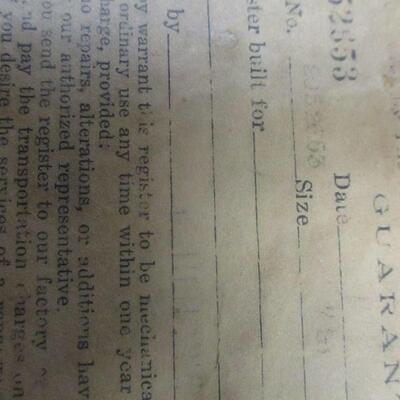 GUARAN
52353 Date
No. Size
ster built for
by
y warrant this register to be mechanica
ordinary use any time within one year
harge, provided:
no repairs, alterations, or additions hav
our authorized representative.
you send the register to our factory
nd pay the transportation charges on
you desire the services of a